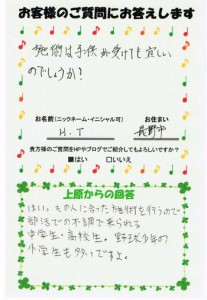 お客様のご質問にお答えします
施術は子供が受けても宜しい
のでしょうか?
お名前(ニックネーム・イニシャル可)
お住まい
H.T
長野市
貴方様のご質問をHPやブログでご紹介してもよろしいですか?
■はい □いいえ
上原からの回答
はい。その人に合った施術を行うので
部活での不調で来られる
中学生・高校生。野球少年の
小学生も多いですよ。